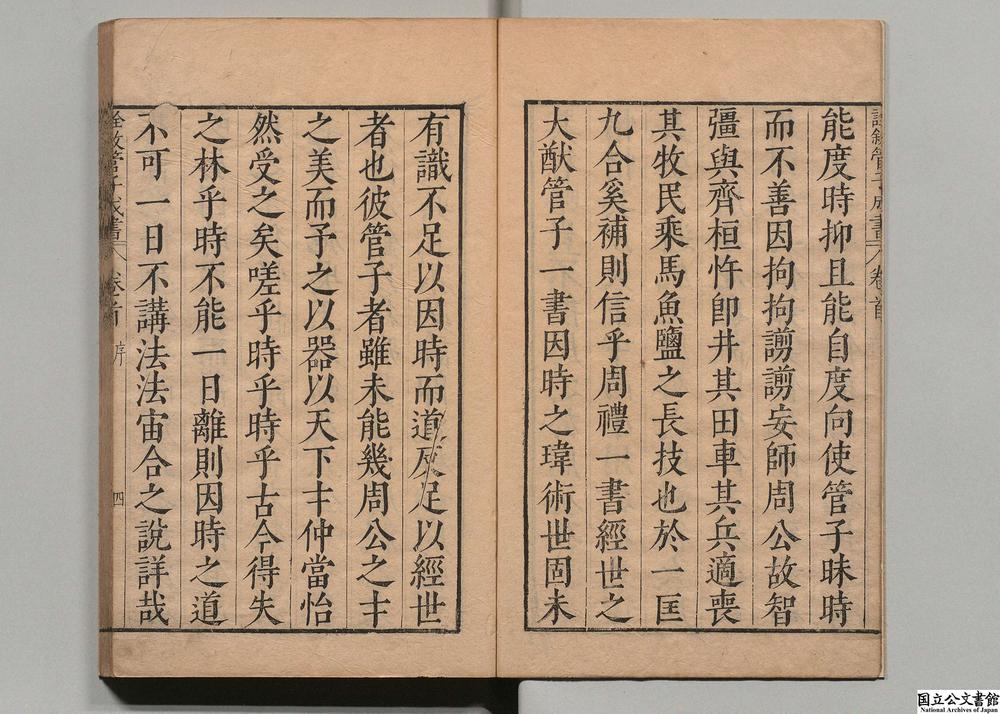 詮敘管子成書 卷首
能度時抑且能自度向使管子昧時
而不善因拘拘謭謭妄師周公故智
彊與齊桓忤卽井其田車其兵適喪
其牧民乘馬魚鹽之長技也於一匡
九合奚補則信乎周禮一書經世之
大猷管子一書因時之瑋術世固未
有識不足以因時而道反足以經世
者也彼管子者雖未能幾周公之才
之美而予之以器以天下才仲當怡
然受之矣嗟乎時乎時乎古今得失
之林乎時不能一日離則因時之道
不可一日不講法法宙合之說詳哉
詮敘管子成書 卷首 序 四
国立公文書館
National Archives of Japan